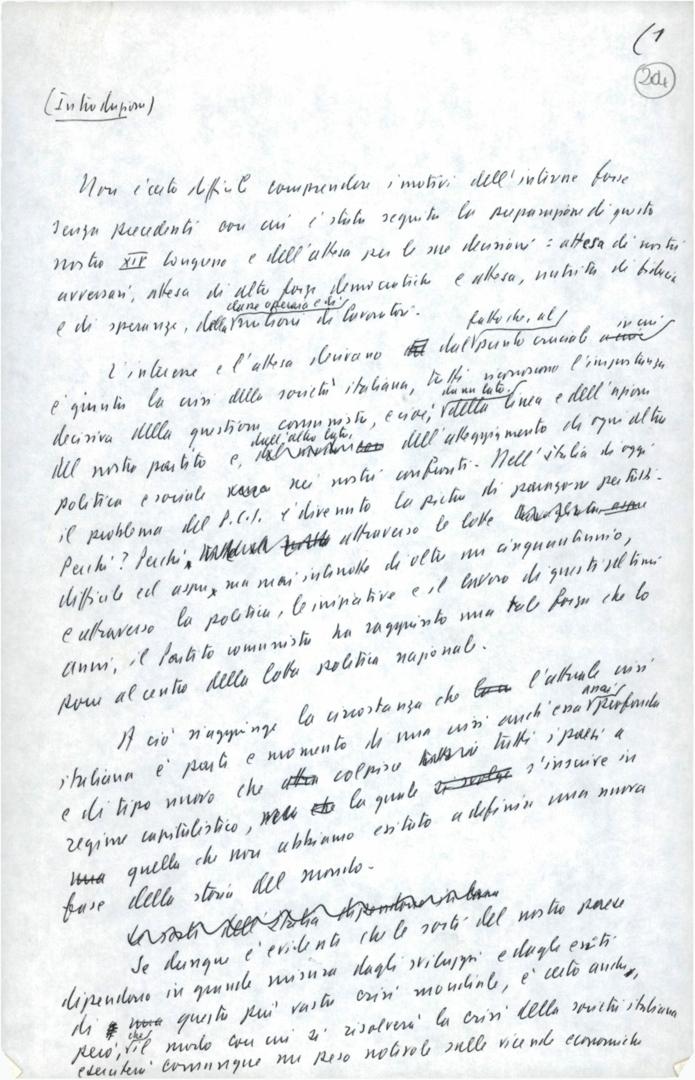 (1
204
(Introduzione)
Non è certo difficile comprendere i motivi dell'interesse forse
senza precedenti con cui è stata seguita la preparazione di questo
nostro XIV Congresso e dell'attesa per le sue decisioni: attesa di nostri
avversari, attesa di altre forze democratiche e attesa, nutrita di fiducia
e di speranza, della classe operaia e di milioni di lavoratori.
L'interesse e l'attesa derivano dal fatto che, al punto cruciale in cui
è giunta la crisi della società italiana, tutti riconoscono l'importanza
decisiva della questione comunista, e cioè, da un lato, della linea e dell'azione
del nostro partito e, dall'altro lato, dell'atteggiamento di ogni altra
politica e sociale nei nostri confronti. Nell'Italia di oggi
il problema del P.C.I. è divenuto la pietra di paragone per tutti.
Perché? Perché, attraverso le lotte
difficile ed aspre, ma mai interrotte di oltre un cinquantennio,
e attraverso la politica, le iniziative e il lavoro di questi ultimi
anni, il Partito comunista ha raggiunto una tale forza che lo
pone al centro della lotta politica nazionale.
A ciò s'aggiunge la circostanza che l'attuale crisi
italiana è parte e momento di una crisi anch'essa assai profonda
e di tipo nuovo che colpisce tutti i paesi a
regime capitalistico, la quale s'inscrive in
quella che non abbiamo esitato a definire una nuova
fase della storia del mondo.
Le sorti dell'Italia dipendono in buona
Se dunque è evidente che le sorti del nostro paese
dipendono in grande misura dagli sviluppi e dagli esiti
di questa più vasta crisi mondiale, è certo anche,
però, che il modo con cui si risolverà la crisi della società italiana
eserciterà comunque un peso notevole sulle vicende economiche